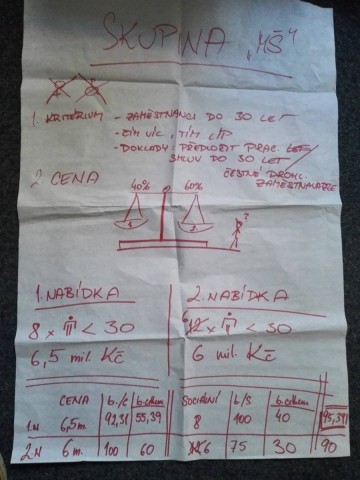 SKUPINA „MŠ"
1. KRITÉRIUM - ZAMĚSTNANCI DO 30 LET
- ČÍM VÍC, TÍM LÍP
- DOKLADY: PŘEDLOŽIT PRAC.
SMLUV DO 30 LET/
ČESTNÉ PROHL.
ZAMĚSTNAVATELE
2. CENA
40% 60%
?
1. NABÍDKA
8 x < 30
6,5 mil. Kč
2. NABÍDKA
6 x < 30
6 mil. Kč
CENA b./c b.celkem
1.N 6,5m. 92,31 55,39
2.N 6 m. 100 60
SOCIÁLNÍ b/S b.celkem
8 100 40 95,39
6 75 30 90